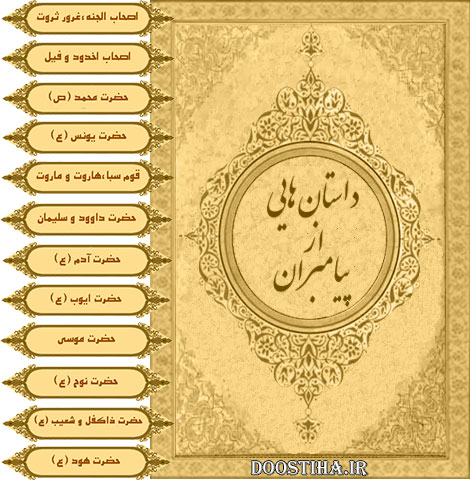 اصحاب الجنه؛غرور ثروت
اصحاب اخدود و فیل
حضرت محمد (ص)
حضرت یونس (ع)
قوم سبا؛هاروت و ماروت
حضرت داوود و سلیمان
حضرت آدم (ع)
حضرت ایوب (ع)
حضرت موسی
حضرت نوح (ع)
حضرت ذاکفل و شعیب (ع)
حضرت هود (ع)
داستان هایی
از
پیامبران
DOOSTIHA.IR